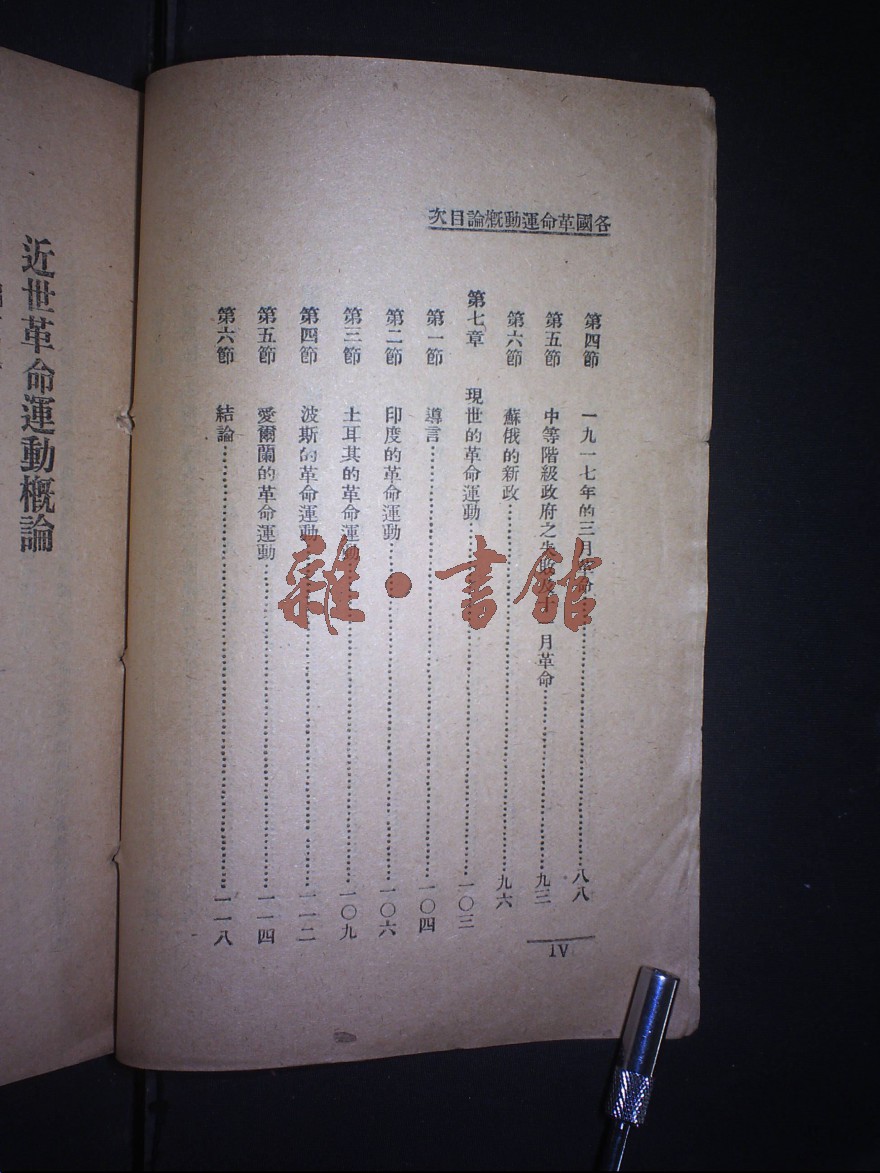 各國革命運動概論目次
第四節 一九一七年的三月革命……八八
第五節 中等階級政府之失敗 月革命……九三
第六節 蘇俄的新政……九六
第七章 現世的革命運動……一〇三
第一節 導言……一〇四
第二節 印度的革命運動……一〇六
第三節 土耳其的革命運動……一〇九
第四節 波斯的革命運動……一一二
第五節 愛爾蘭的革命運動……一一四
第六節 結論……一一八
IV
近世革命運動概論
雜·書館